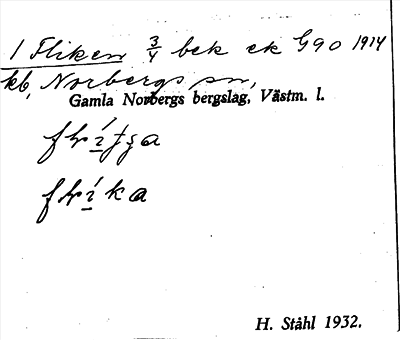 1 Fliken 3/4 bek ek G90 1914
kb, Norbergs sn,
Gamla Norbergs bergslag, Västm. l.
H. Ståhl 1932.